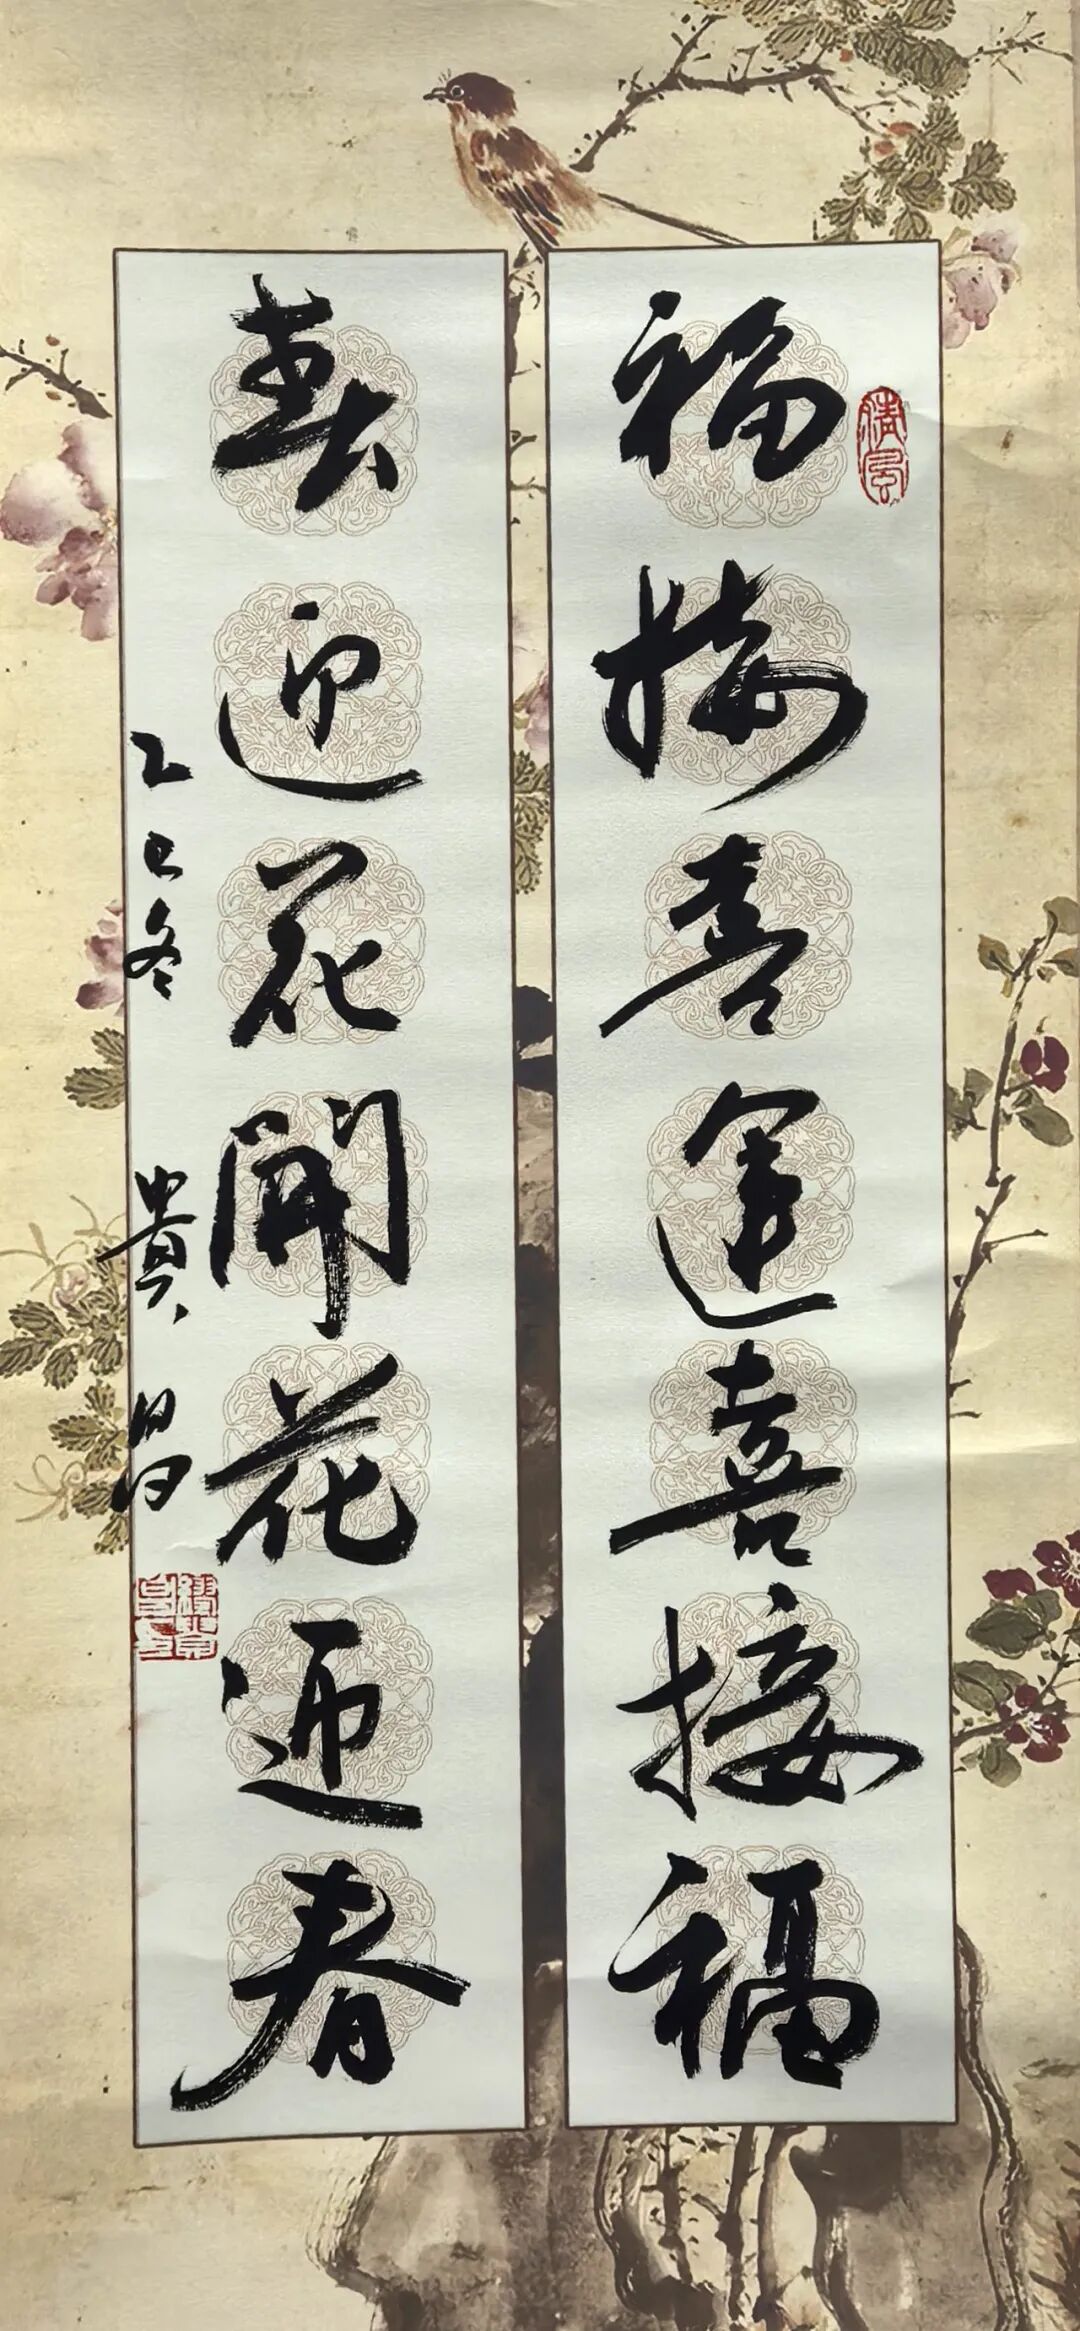 福接喜運喜接福
春迎花開花迎春
乙巳冬 貴昌
清風